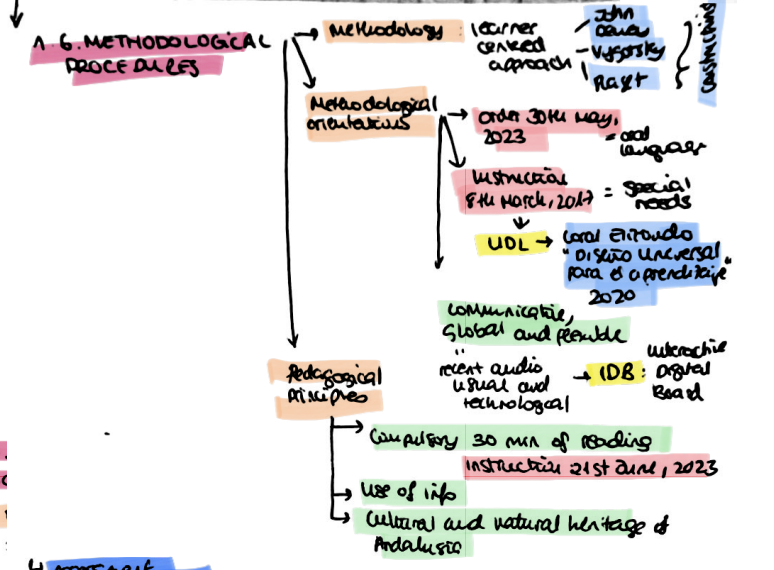 1.6. METHODOLOGICAL
PROCEDURES
Methodology : learner
centred
approach
John
Dewey
Vygotsky
Piaget
constructivism
Methodological
orientations
Order 30th May,
2023
= oral
language
Instruction
8th March, 2017 = special
needs
UDL → Coral Elizondo
"Diseño Universal
para el aprendizaje"
2020
communicative,
Global and flexible
"recent audio
visual and
technological
→ IDB : Interactive
Digital
Board
Pedagogical
principles
Compulsory 30 min of reading
Instruction 21st June, 2023
Use of info
Cultural and natural heritage of
Andalusia